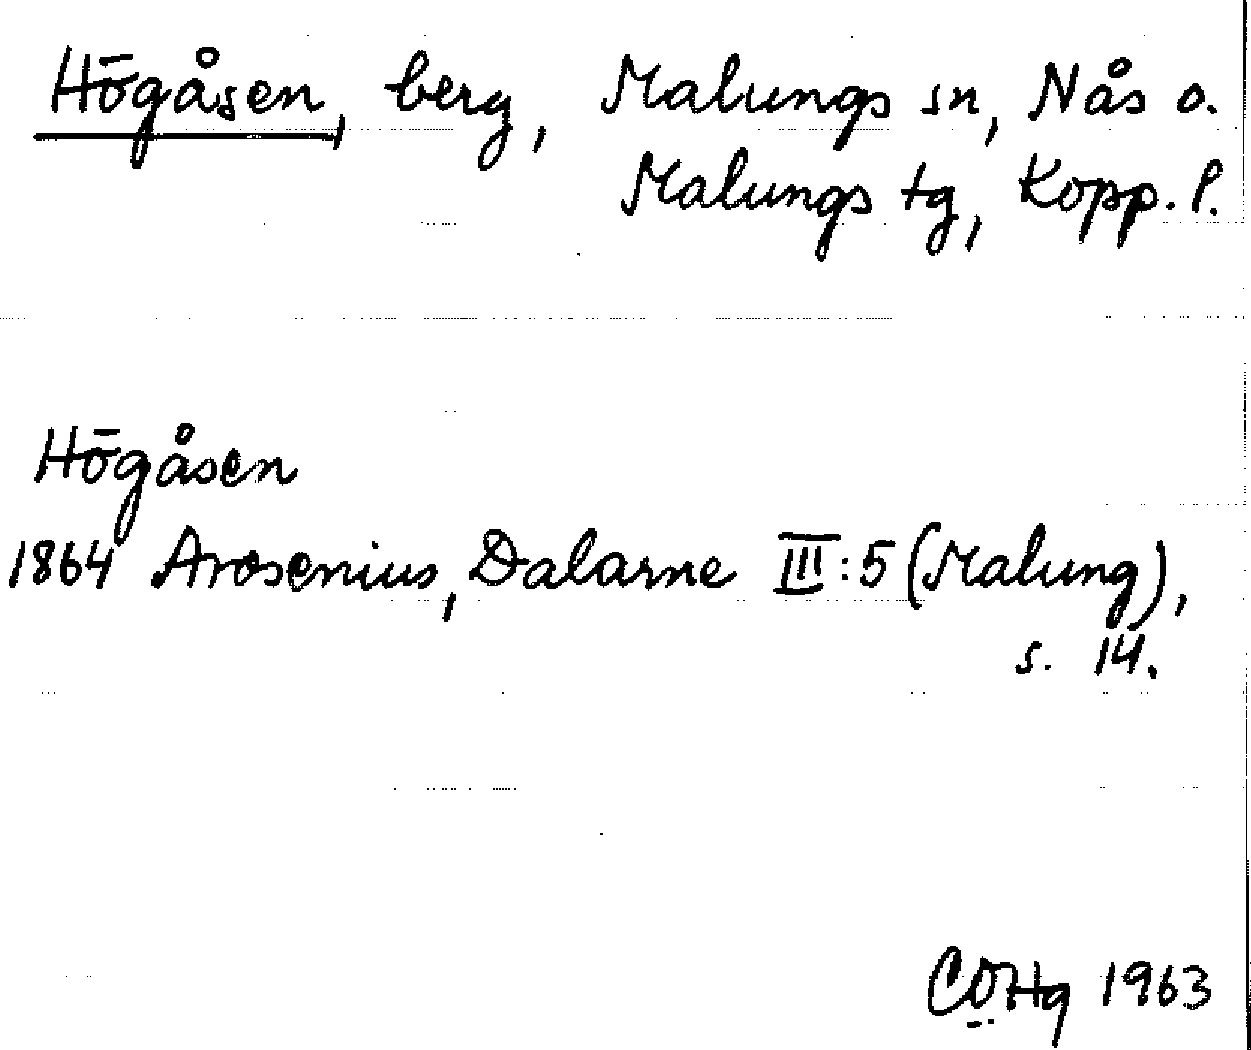 Högåsen, berg, Malungs sn, Nås o.
Malungs tg, Kopp. l.
Högåsen
1864 Arosenius, Dalarne III:5 (Malung),
s. 14.
CÖHg 1963